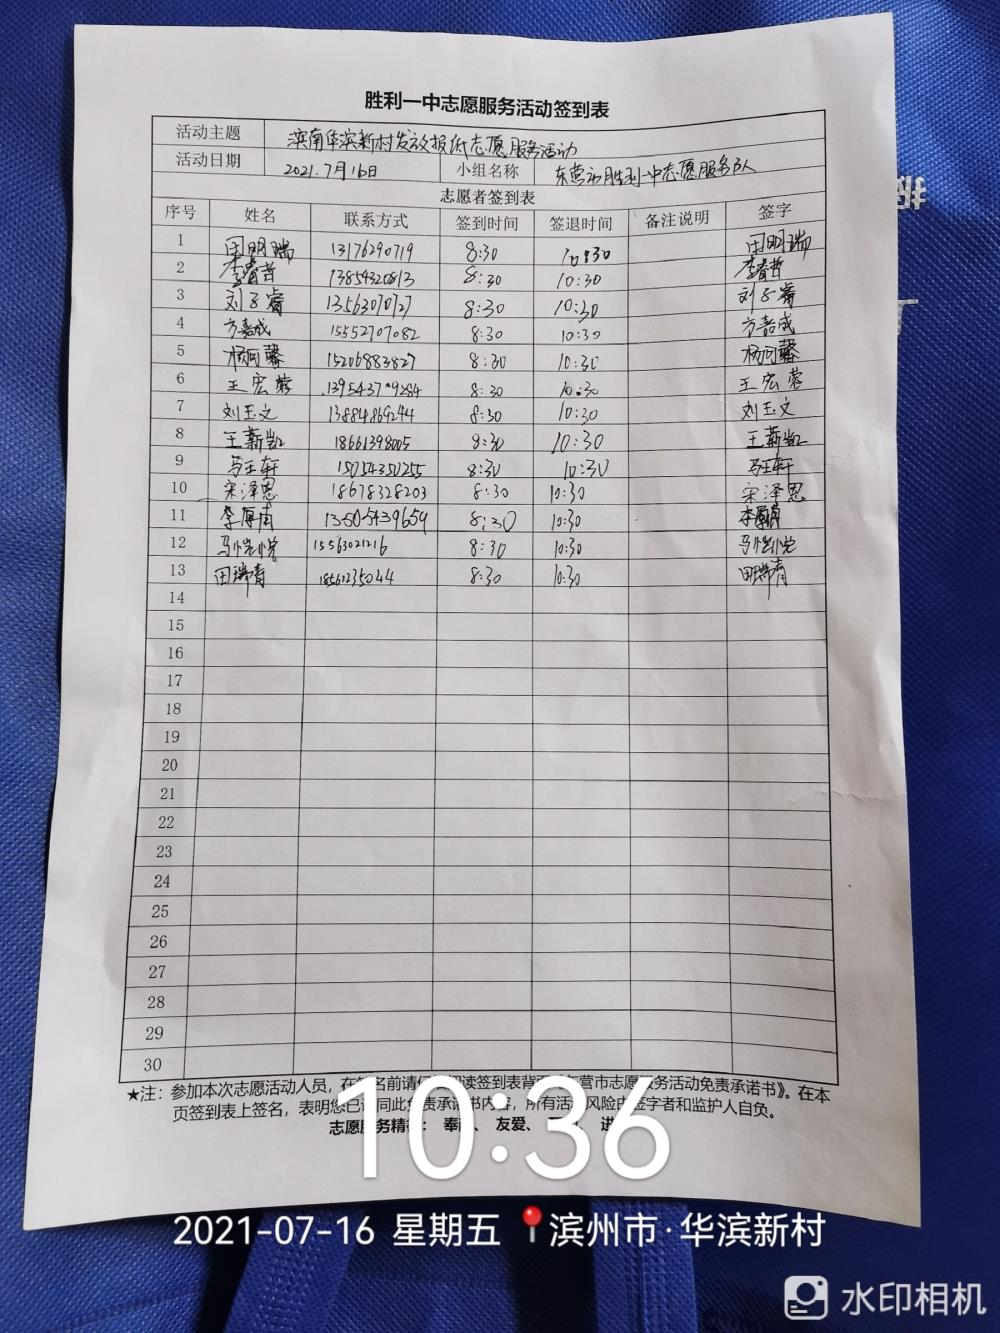 胜利一中志愿服务活动签到表
活动主题 滨南华滨新村发放报纸志愿服务活动
活动日期 2021.7月16日 小组名称 东营市胜利一中志愿服务队
志愿者签到表
序号 姓名 联系方式 签到时间 签退时间 备注说明 签字
1 田明瑞 13176290719 8:30 10:30 田明瑞
2 李睿哲 13854320813 8:30 10:30 李睿哲
3 刘子睿 13563070727 8:30 10:30 刘子睿
4 方嘉成 15552707082 8:30 10:30 方嘉成
5 杨问馨 15206883827 8:30 10:30 杨问馨
6 王宏蓉 13954379284 8:30 10:30 王宏蓉
7 刘玉文 13884869244 8:30 10:30 刘玉文
8 王薪凯 18661398005 8:30 10:30 王薪凯
9 马玉轩 15054350255 8:30 10:30 马玉轩
10 宋泽恩 18678328203 8:30 10:30 宋泽恩
11 李厚甫 13505439659 8:30 10:30
12 马恺悦 15563021216 8:30 10:30 马恺悦
13 田瑞青 18561235044 8:30 10:30 田瑞青
14
15
16
17
18
19
20
21
22
23
24
25
26
27
28
29
30
★注：参加本次志愿活动人员，在 名前请 阅读签到表背 营市志愿服务活动免责承诺书》。在本
页签到表上签名，表明您已 同此 责承诺书内容，所有活 风险由签字者和监护人自负。
志愿服务精 ： 奉 、 友爱、 、 进
10:36
2021-07-16 星期五 滨州市·华滨新村
水印相机